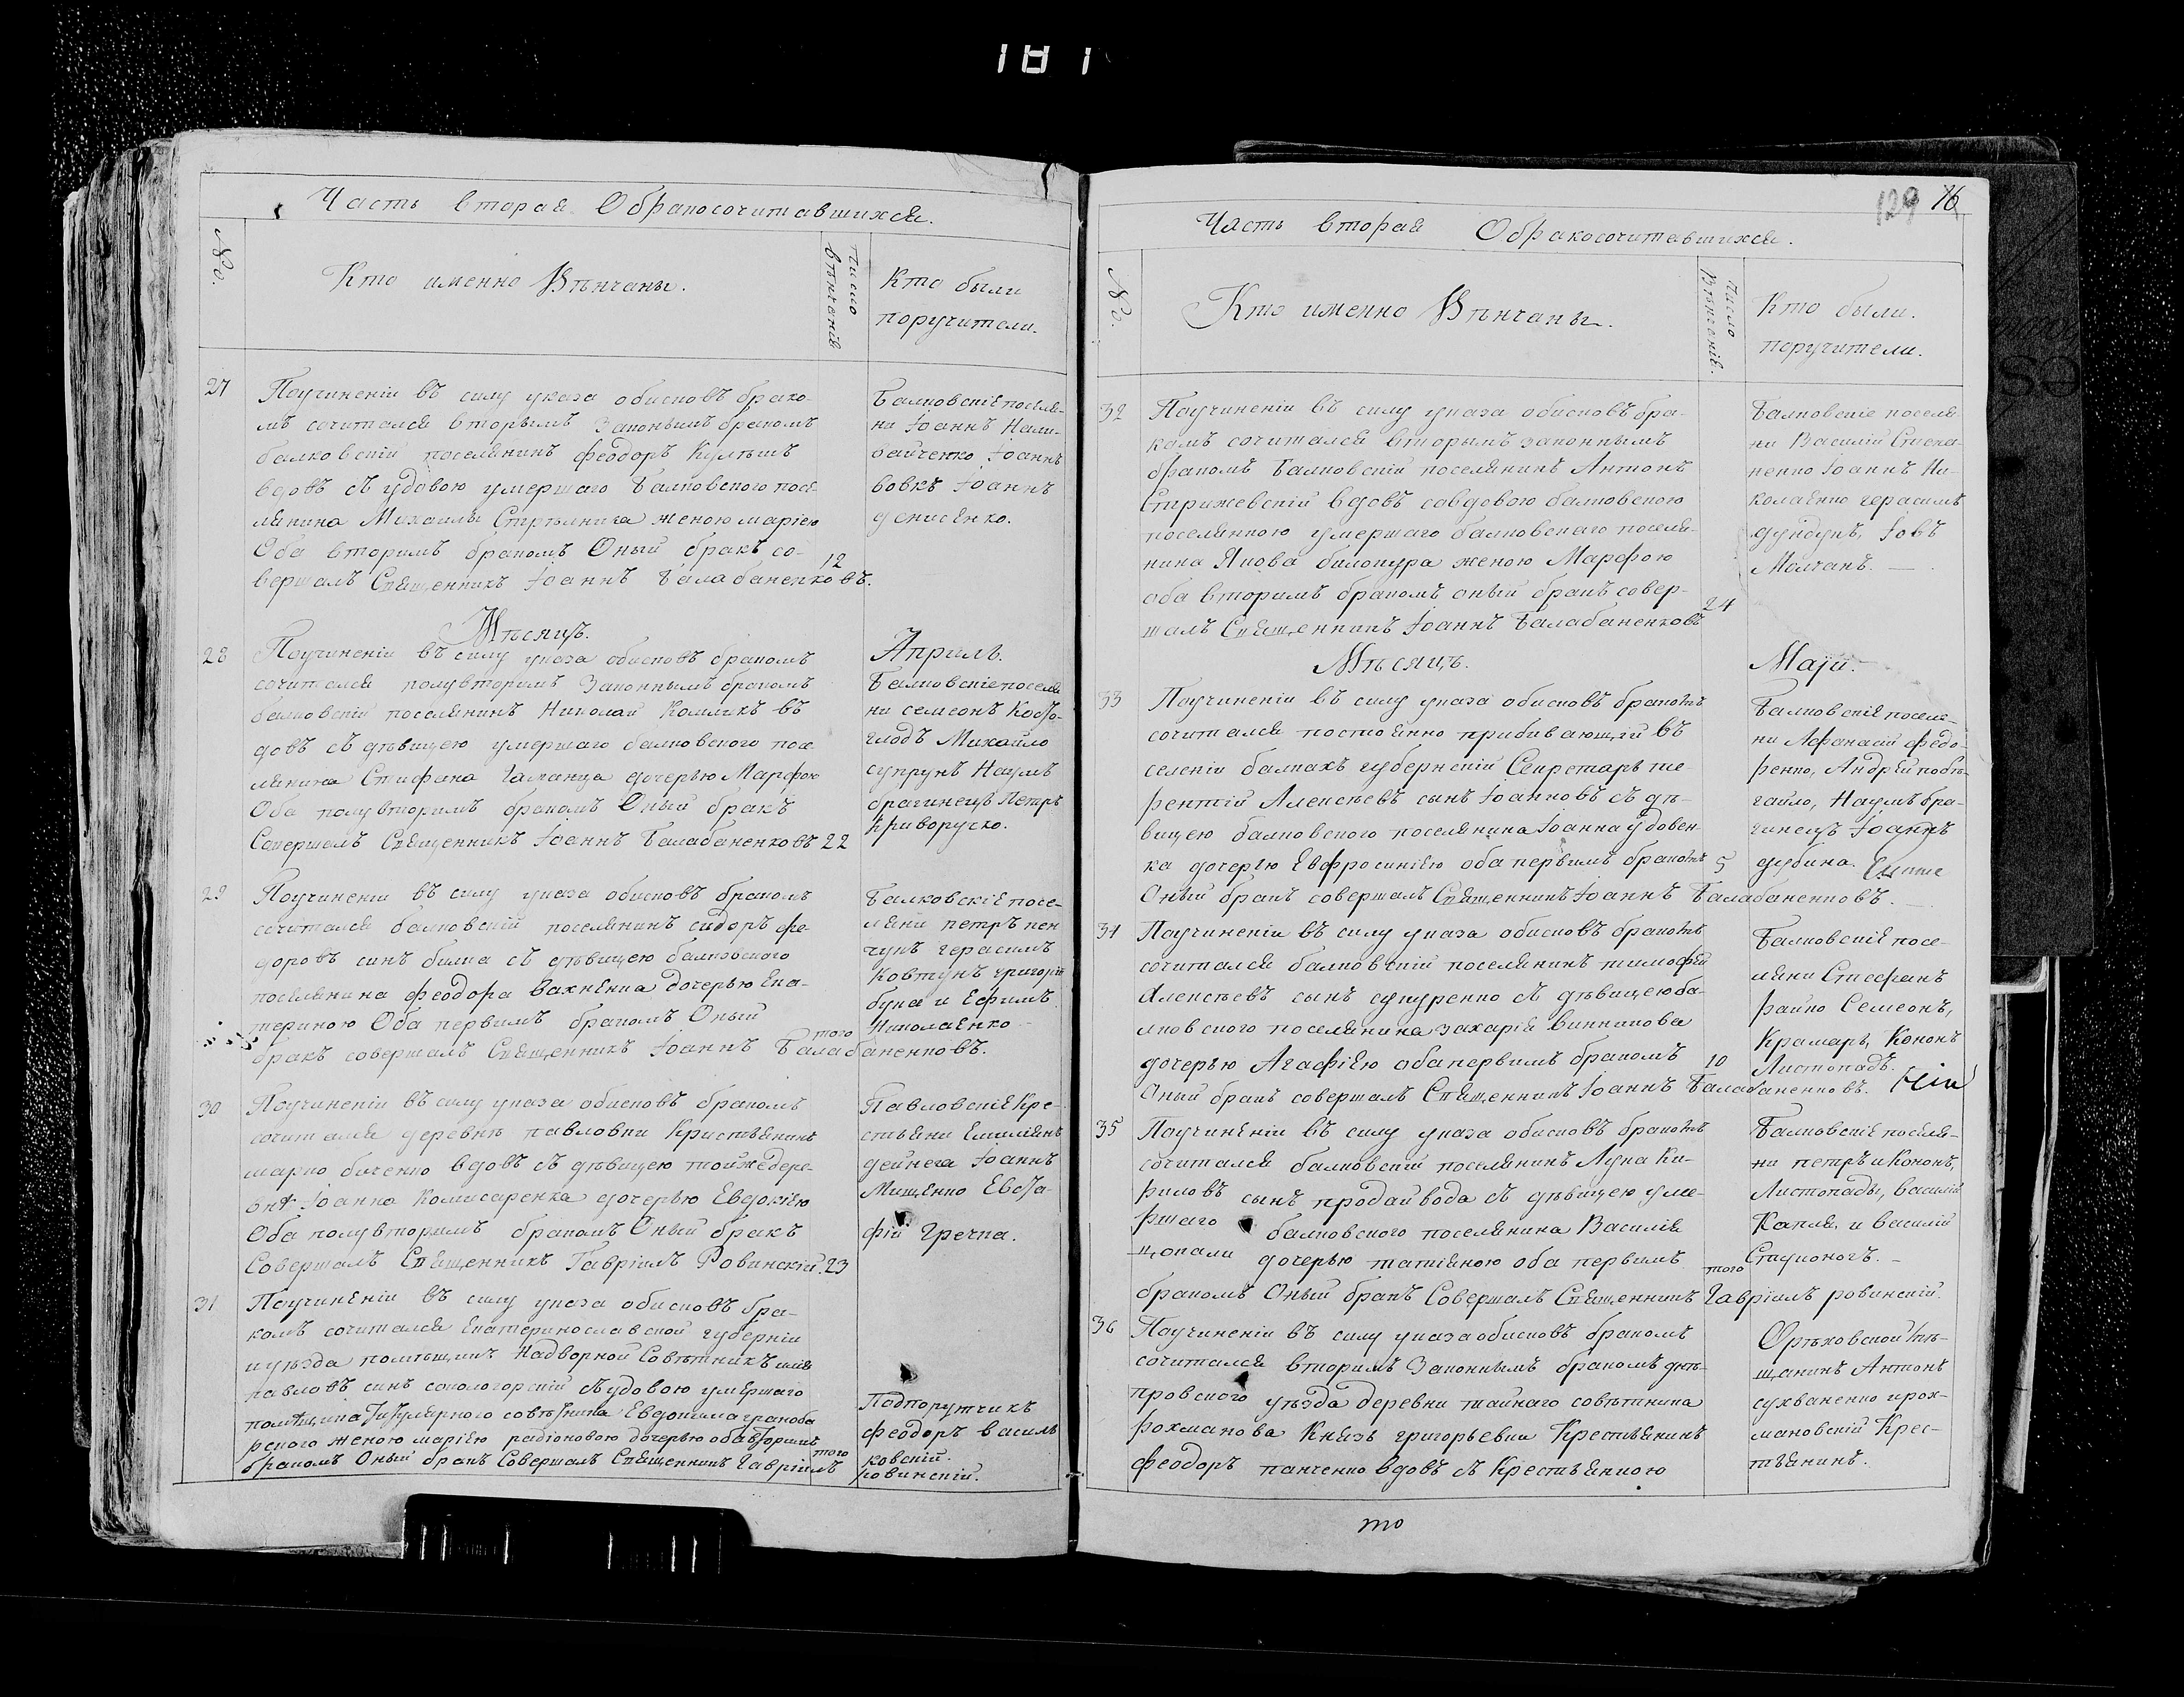 181
Часть вторая Обракосочитавшихся.
№.
Кто именно Вѣнчаны.
Число вѣнчанія
Кто были
поручители.
27
Поучиненіи въ силу указа обисковъ брако-
мъ сочитался вторымъ законнымъ бракомъ
балковскій поселянинъ феодоръ Кулѣшъ
вдовъ съ удовою умершаго Балковского посе-
лянина Михаилы женою маріею
Оба вторимъ бракомъ Оный бракъ со-
вершалъ Священникъ Іоаннъ Балабаненковъ.
12
Балковскіе поселя-
не Іоаннъ Нали-
вайченко, Іоаннъ
вовкъ Іоаннъ
денисенко.
Мѣсяцъ.
Априль.
28
Поучиненіи въ силу указа обисковъ бракомъ
сочитался полувторимъ Законнымъ бракомъ
балковскій поселянинъ Николай въ
довъ съ дѣвицею умершаго балковского посе
лянина Стифана дочерью Марфою
Оба полувторимъ бракомъ Оный бракъ
Совершалъ Священникъ Іоаннъ Балабаненковъ 22
Балковскіе поселя
ни семеонъ
Михайло
супрунъ Наумъ
брагинецъ Петръ
Криворучко.
29
Поучиненіи въ силу указа обисковъ бракомъ
сочитался балковскій поселянинъ сидоръ фе-
доровъ синъ билка съ дѣвицею балковского
поселянина феодора вахненка дочерью Ека-
териною Оба первимъ бракомъ Оный
бракъ совершалъ Священникъ Іоаннъ Балабаненковъ.
того
Балковскіе посе-
ляни петръ
герасимъ
Ковтунъ григорій
бука и Ефимъ
Николаенко
30
Поучиненіи въ силу указа обисковъ бракомъ
сочитался деревни павловки Кристьянинъ
марко биченко вдовъ съ дѣвицею тойже дере-
вни Іоанна Комисаренка дочерью Евдокіею
Оба полувторимъ бракомъ Оный бракъ
Совершалъ Священникъ Гавріилъ Ровинскій. 23
Павловскіе Кре-
стьяни Емиліянъ
дейнега Іоаннъ
Мищенко Евста-
фій Гречка.
31
Поучиненіи въ силу указа обисковъ бра-
комъ сочитался Екатеринославской губерніи
иуѣзда помѣщикъ Надворной Совѣтникъ илія
павловъ синъ сокологорскій съудовою умершаго
помѣщика Титулярного совѣтника Евдокима
рского женою маріею радіоновою дочерью оба вторимъ
бракомъ Оный бракъ Совершалъ Священникъ Гавріилъ
того
ровинскій.
Подпорутчикъ
феодоръ василь
ковскій.
129 16
Часть вторая Обракосочитавшихся.
№.
Кто именно Вѣнчаны.
Число Вѣнчанія.
Кто были.
поручители.
32
Поучиненіи въ силу указа обисковъ бра-
комъ сочитался вторымъ законнымъ
бракомъ Балковскій поселянинъ Антонъ
Стрижевскій вдовъ совдовою балковскою
поселянкою умершаго балковскаго поселя-
нина Якова билокура женою Марфою
оба вторимъ бракомъ оный бракъ совер-
шалъ Священникъ Іоаннъ Балабаненковъ
24
Балковскіе поселя
ни Василій
ненко Іоаннъ Ни-
колаенко герасимъ
Іовъ
Молчанъ.
Мѣсяцъ.
Маји.
33
Поучиненіи въ силу указа обисковъ бракомъ
сочитался постоянно прибивающій въ
селеніи балкахъ губернскій Секретарь те-
рентій Алексѣевъ сынъ Іоанновъ съ дѣ-
вицею балковского поселянина Іоанна удовен-
ка дочерью Евфросиніею оба первимъ бракомъ
Оный бракъ совершалъ Священникъ Іоаннъ Балабаненковъ.
5
Балковскіе поселя-
ни Афанасій федо-
ренко, Андрей побѣ-
гайло, Наумъ бра-
гинецъ Іоаннъ
дубина.
34
Поучиненіи въ силу указа обисковъ бракомъ
сочитался балковскій поселянинъ тимофей
Алексѣевъ сынъ сукуренко съ дѣвицею ба-
лковского поселянина захарія винникова
дочерью Агафіею оба первимъ бракомъ
Оный бракъ совершалъ Священникъ Іоаннъ Балабаненковъ.
10
Балковскіе посе-
ляни Стефанъ
райко Семеонъ,
Крамарь, Кононъ
Листопадъ.
35
Поучиненіи въ силу указа обисковъ бракомъ
сочитался балковскій поселянинъ Лука Ки-
риловъ сынъ продайвода съ дѣвицею уме-
ршаго балковского поселянина Василія
щокали дочерью татіяною оба первимъ
бракомъ Оный бракъ Совершалъ Священникъ Гавріилъ ровинскій.
того
Балковскіе поселя-
ни петръ и Кононъ,
Листопады, василій
Капля, и василій
Стауконогъ.
36
Поучиненіи въ силу указа обисковъ бракомъ
сочитался вторимъ Законнымъ бракомъ днѣ-
провского уѣзда деревни тайнаго совѣтника
рохманова Князь григорьевки Крестьянинъ
феодоръ панченко вдовъ съ Крестьянкою
Орѣховской мѣ-
щанинъ Антонъ
сухваненко и рох-
мановскій Крес-
тьянинъ.
то